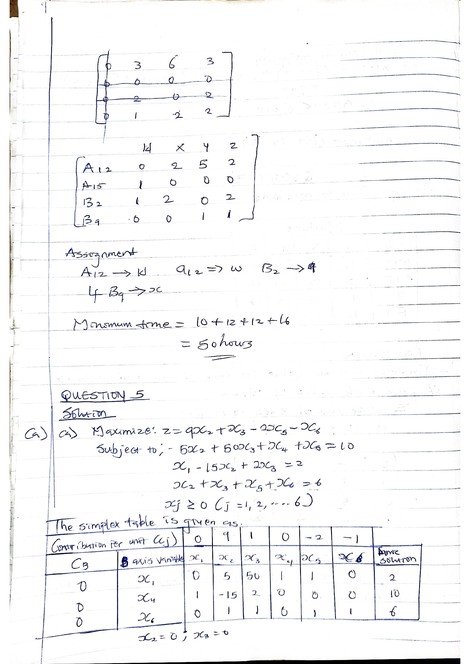 0 3 6 3
0 0 0 0
0 2 0 2
0 1 2 2
W X Y Z
A12 0 2 5 2
A15 1 0 0 0
B2 1 2 0 2
B9 0 0 1 1
Assignment
A12 → W a12 => w B2 → y
4 B9 → x
Minimum time = 10 + 12 + 12 + 16
= 50 hours
QUESTION 5
Solution
(a) (a) Maximize: Z = 9x2 + x3 - 2x5 - x6
Subject to; - 5x2 + 50x3 + x4 + x5 = 10
x1 - 15x2 + 2x3 = 2
x2 + x3 + x5 + x6 = 6
xj ≥ 0 (j = 1, 2, ... 6)
The simplex table is given as.
Contribution per unit (Cj) 0 9 1 0 -2 -1
CB Basis variable x1 x2 x3 x4 x5 x6 solution
0 x1 0 5 50 1 1 0 2
0 x4 1 -15 2 0 0 0 10
0 x6 0 1 1 0 1 1 6
x2 = 0; x3 = 0